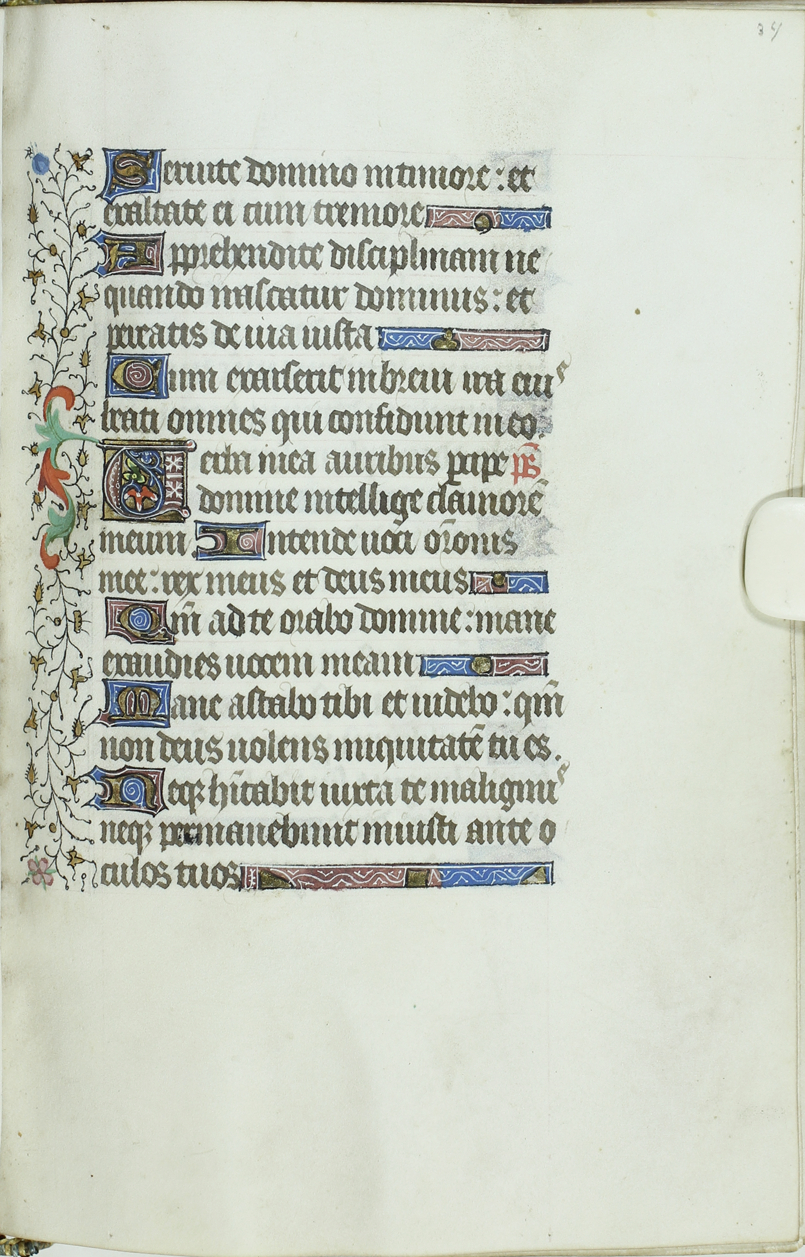 34
Seruite domino in timore : et
exaltate ei cum tremore
Apprehendite disciplinam ne
quando irascatur dominus : et
pereatis de uia iusta
Cum exarserit in breui ira eiu⁹
beati omnes qui confidunt in eo.
Uerba mea auribus ꝑcipe p̄s
domine intellige clamorē
meum. Intende uoci or̄onis
mee : rex meus et deus meus
Qm̄ ad te orabo domine : mane
exaudies uocem meam
Mane astabo tibi et uidebo : qm̄
non deus uolens iniquitatē tu es.
Neqꝫ hītabit iuxta te malignu⁹
neqꝫ permanebunt iniusti ante o
culos tuos